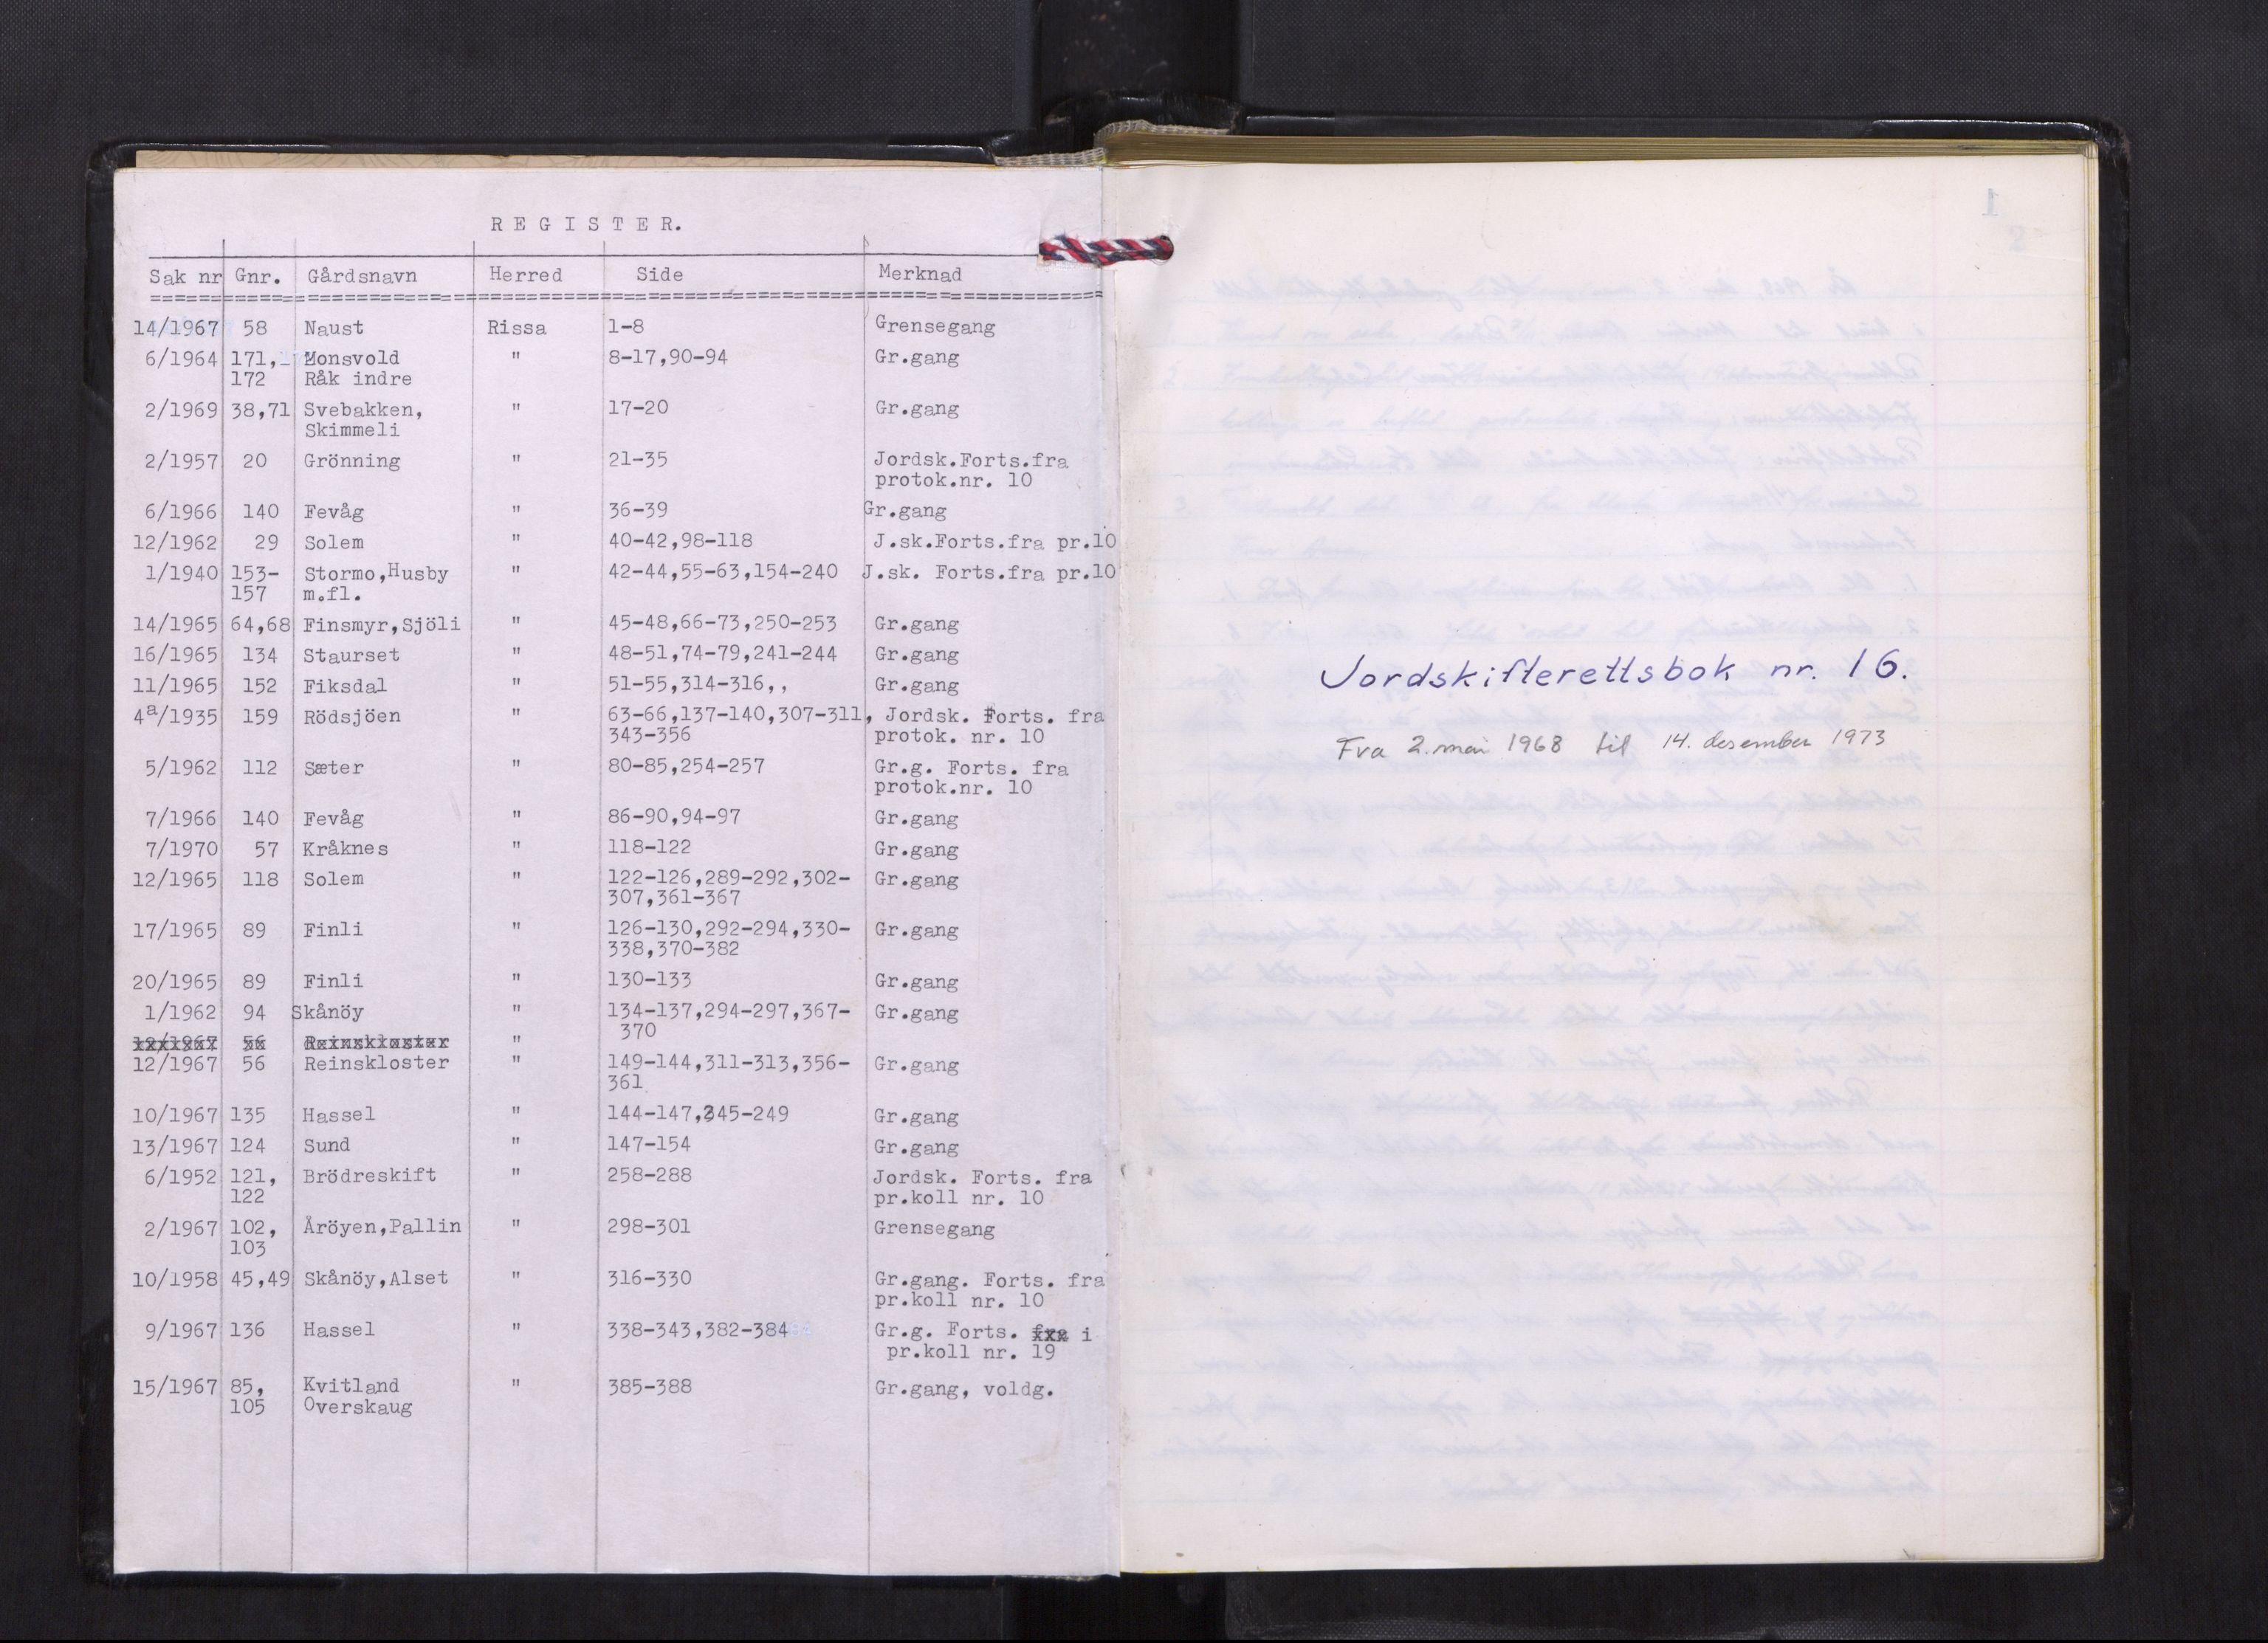 REGISTER.
Sak nr Gnr. Gårdsnavn Herred Side Merknad
14/1967 58 Naust Rissa 1-8 Grensegang
6/1964 171, Monsvold " 8-17,90-94 Gr.gang
172 Råk indre
2/1969 38,71 Svebakken, " 17-20 Gr.gang
Skimmeli
2/1957 20 Grönning " 21-35 Jordsk.Forts.fra
protok.nr. 10
6/1966 140 Fevåg " 36-39 Gr.gang
12/1962 29 Solem " 40-42,98-118 J.sk.Forts.fra pr.10
1/1940 153- Stormo,Husby " 42-44,55-63,154-240 J.sk. Forts.fra pr.10
157 m.fl.
14/1965 64,68 Finsmyr,Sjöli " 45-48,66-73,250-253 Gr.gang
16/1965 134 Staurset " 48-51,74-79,241-244 Gr.gang
11/1965 152 Fiksdal " 51-55,314-316,, Gr.gang
4a/1935 159 Rödsjöen " 63-66,137-140,307-311, Jordsk. Forts. fra
343-356 protok. nr. 10
5/1962 112 Sæter " 80-85,254-257 Gr.g. Forts. fra
protok.nr. 10
7/1966 140 Fevåg " 86-90,94-97 Gr.gang
7/1970 57 Kråknes " 118-122 Gr.gang
12/1965 118 Solem " 122-126,289-292,302- Gr.gang
307,361-367
17/1965 89 Finli " 126-130,292-294,330- Gr.gang
338,370-382
20/1965 89 Finli " 130-133 Gr.gang
1/1962 94 Skånöy " 134-137,294-297,367- Gr.gang
370
12/1967 56 Reinskloster "
12/1967 56 Reinskloster " 149-144,311-313,356- Gr.gang
361
10/1967 135 Hassel " 144-147,245-249 Gr.gang
13/1967 124 Sund " 147-154 Gr.gang
6/1952 121, Brödreskift " 258-288 Jordsk. Forts. fra
122 pr.koll nr. 10
2/1967 102, Åröyen,Pallin " 298-301 Grensegang
103
10/1958 45,49 Skånöy,Alset " 316-330 Gr.gang. Forts. fra
pr.koll nr. 10
9/1967 136 Hassel " 338-343,382-384 Gr.g. Forts. fra i
pr.koll nr. 19
15/1967 85, Kvitland " 385-388 Gr.gang, voldg.
105 Overskaug
Jordskifterettsbok nr. 16.
Fra 2. mai 1968 til 14. desember 1973